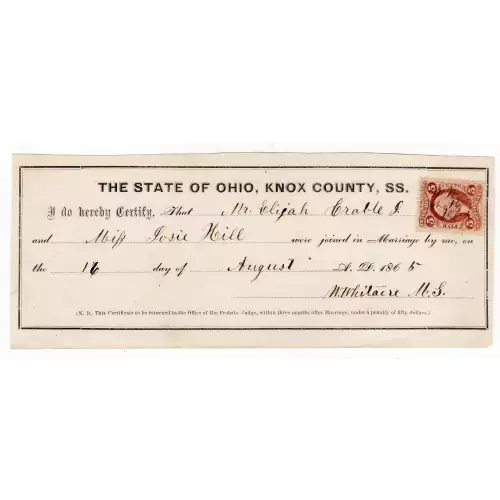 THE STATE OF OHIO, KNOX COUNTY, SS.
I do hereby Certify, That Mr. Elijah Crable J.
and Miss Josie Hill were joined in Marriage by me, on
the 16 day of August A. D. 1865
W. Whitacre M. G.
(N. B. This Certificate to be returned to the Office of the Probate Judge, within three months after Marriage, under a penalty of fifty dollars.)
5 5